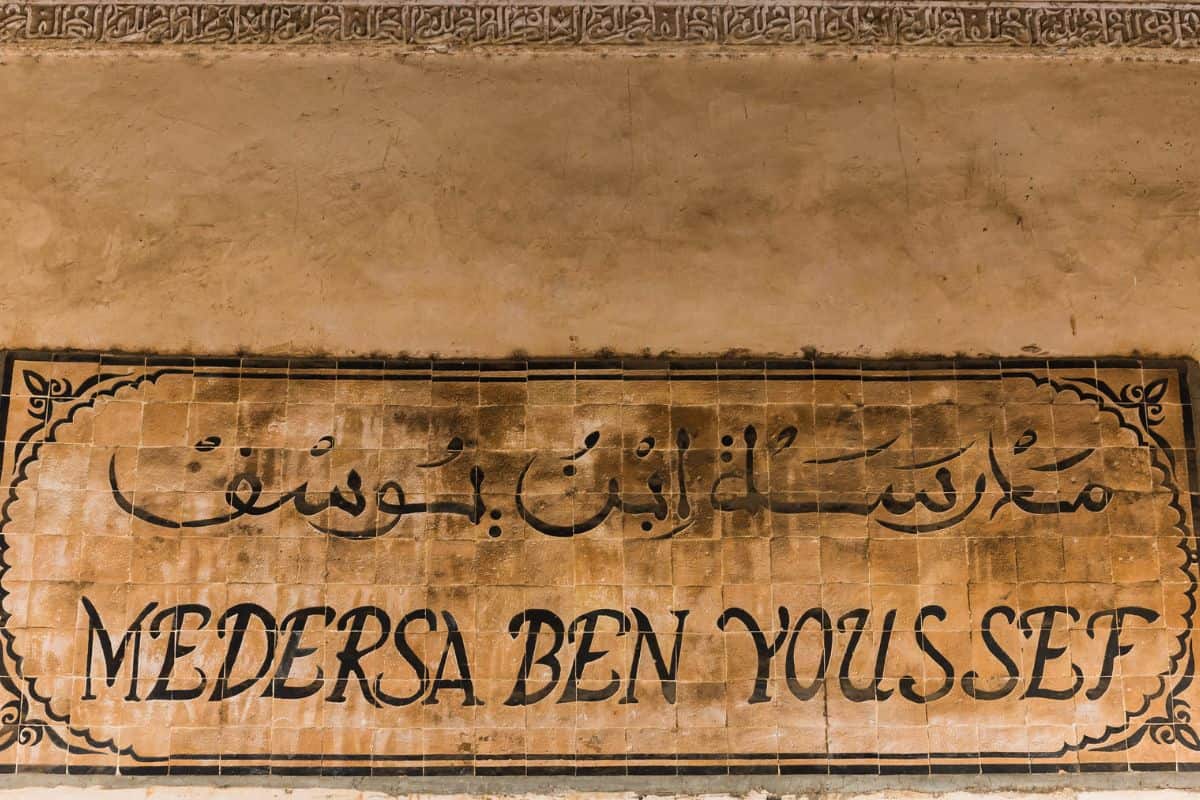 مدرسة ابن يوسف
MEDERSA BEN YOUSSEF